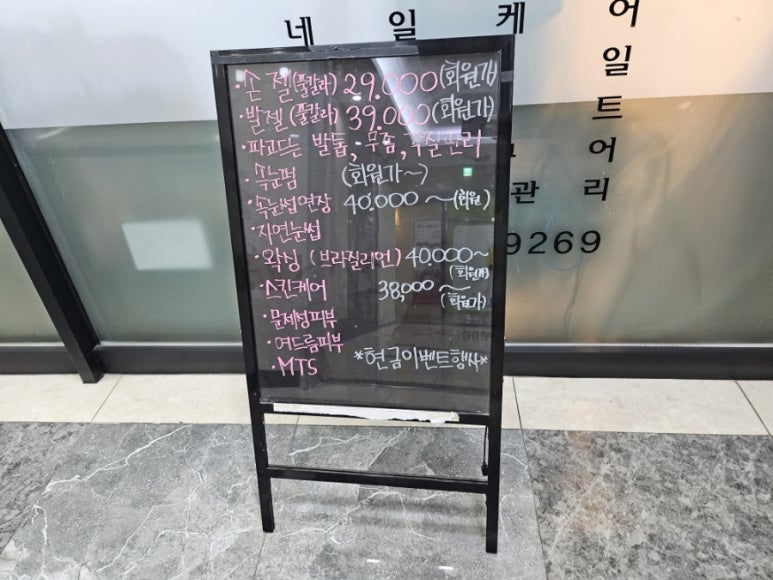 네 일 케 어
일
트
어
관 리
9269
·손 젤(풀칼라) 29.000(회원가)
·발젤(풀칼라) 39.000(회원가)
·파고드는 발톱, 무좀,
·속눈펌 (회원가~)
·속눈썹연장 40.000 ~(회원)
·자연눈썹
·왁싱 (브라질리언) 40,000~
(회원가)
·스킨케어 38,000 ~
(회원가)
·문제성피부
·여드름피부
·MTS *현금이벤트행사*